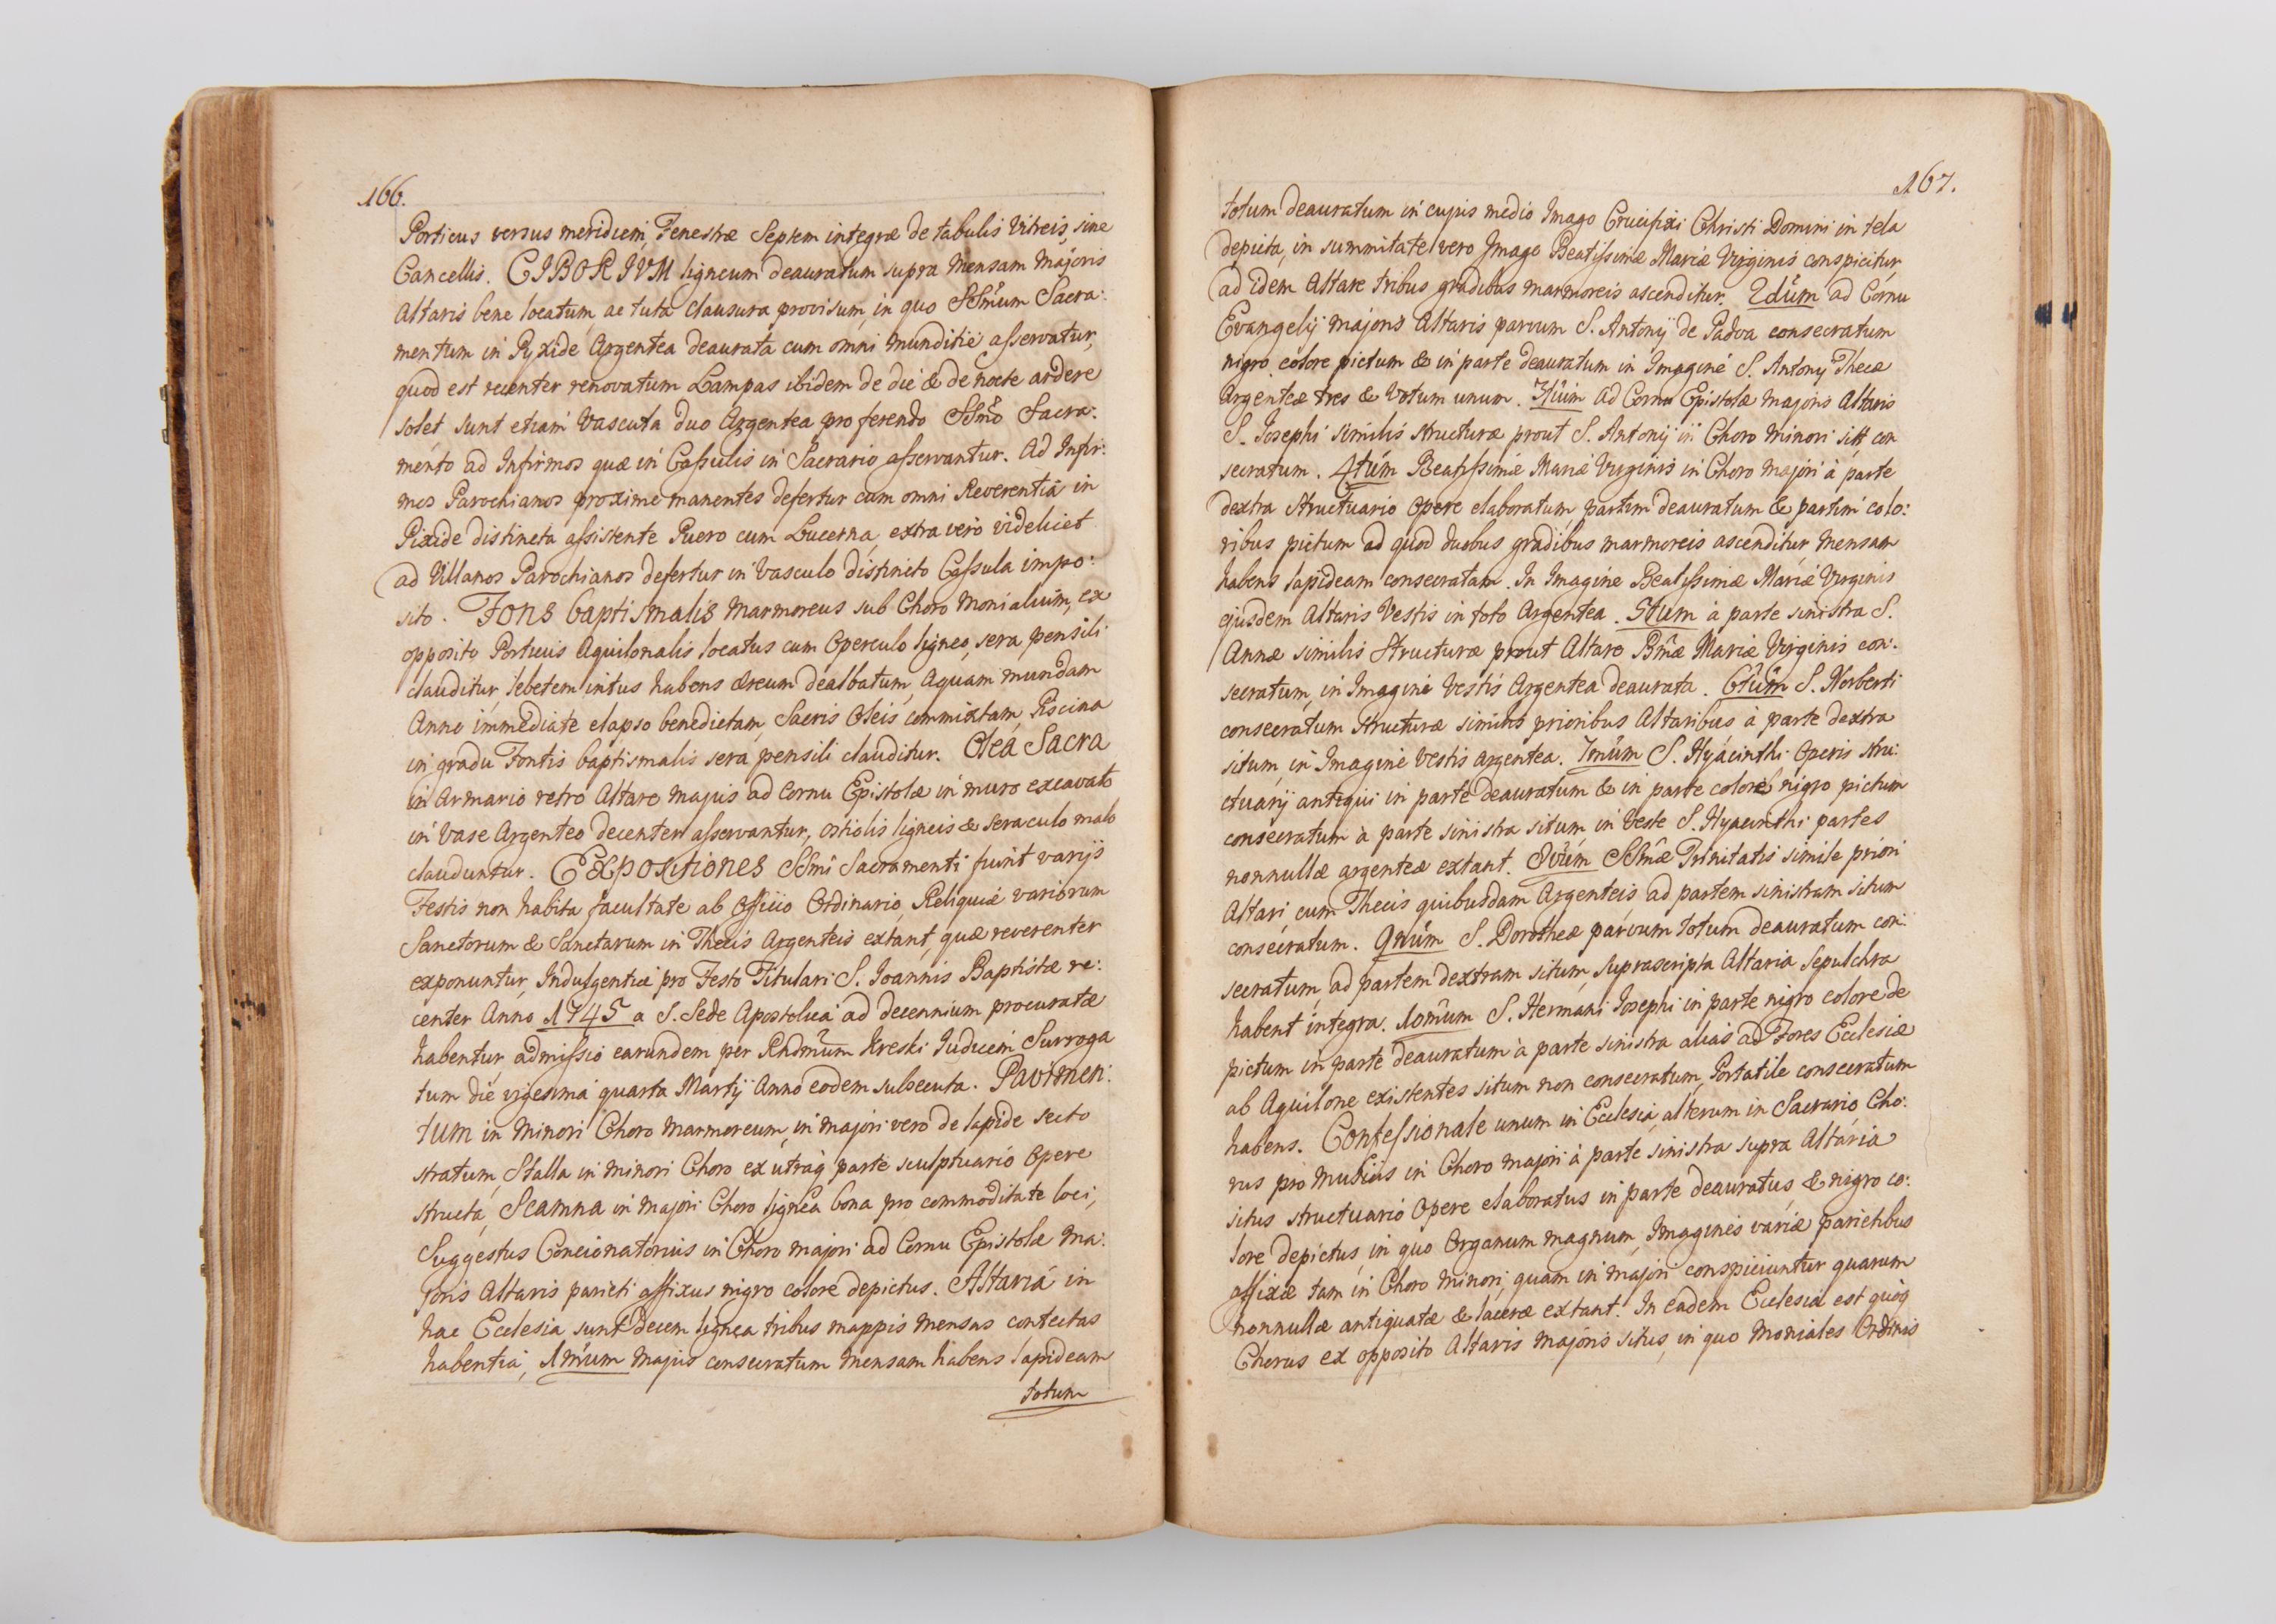 166.
Porticus versus meridiem, Fenestræ Septem integræ de tabulis Vitreis, sine
Cancellis. CIBORIVM ligneum deauratum supra Mensam Majoris
Altaris bene locatum, ac tuta clausura provisum, in quo SSm̃um Sacra:
mentum in Pyxide Argentea deaurata cum omni munditie asservatur,
quod est recenter renovatum Lampas ibidem de die & de nocte ardere
solet sunt etiam Vascula duo Argentea pro ferendo SSm̃o Sacra:
mento ad Infirmos quæ in Capsulis in Sacrario asservantur. Ad Infir:
mos Parochianos proxime manentes defertur cum omni Reverentia in
Pixide distincta assistente Puero cum Lucerna, extra vero videlicet
ad Villanos Parochianos defertur in Vasculo distincto Capsula impo:
sito. Fons baptismalis Marmoreus sub Choro Monialium, ex
opposito Porticus Aquilonalis locatus cum Operculo ligneo, sera pensili
clauditur, lebetem intus habens æreum dealbatum, Aquam mundam
Anno immediate elapso benedictam, Sacris Oleis commixtam, Piscina
in gradu Fontis baptismalis sera pensili clauditur. Olea Sacra
in Armario retro Altare majus ad Cornu Epistolæ in muro excavato
in Vase Argenteo decenter asservantur, ostiolis ligneis & seraculo malo
clauduntur. Expositiones SSmi Sacramenti fiunt varijs
Festis non habita facultate ab Officio Ordinario, Reliquiæ variorum
Sanctorum & Sanctarum in Thecis Argenteis extant, quæ reverenter
exponuntur, Indulgentiæ pro Festo Titulari S. Ioannis Baptistæ re:
center Anno 1745 a S. Sede Apostolica ad decennium procuratæ
habentur, admissio earundem per Rndm̃um Kreski Iudicem Surroga
tum die vigesima quarta Martij Anno eodem subsecuta. Pavimen:
tum in Minori Choro Marmoreum, in majori vero de lapide secto
stratum, Stalla in minori Choro ex utraq parte sculptuario Opere
structa, Scamna in majori Choro lignea bona pro commoditate loci,
Suggestus Concionatorius in Choro majori ad Cornu Epistolæ Ma:
joris Altaris parieti affixus nigro colore depictus. Altaria in
hac Ecclesia sunt decem lignea tribus mappis mensas contectas
habentia, 1mum majus consecratum Mensam habens lapideam
totum
167.
totum deauratum in cujus medio Imago Crucifixi Christi Domini in tela
depicta, in summitate vero Imago Beatissimæ Mariæ Virginis conspicitur,
ad idem Altare tribus gradibus marmoreis ascenditur. 2dum ad Cornu
Evangelij majoris Altaris parvum S. Antonij de Padva consecratum
nigro colore pictum & in parte deauratum in Imagine S. Antonij Thecæ
Argenteæ tres & Votum unum. 3tium ad Cornu Epistolæ majoris Altaris
S. Iosephi similis structuræ prout S. Antonij in Choro Minori con
secratum. 4tum Beatissimæ Mariæ Virginis in Choro majori à parte
dextra Structuario Opere elaboratum, partim deauratum & partim colo:
ribus pictum ad quod duobus gradibus marmoreis ascenditur Mensam
habens lapideam consecratam. In Imagine Beatissimæ Mariæ Virginis
ejusdem Altaris Vestis in toto Argentea. 5tum à parte sinistra S.
Annæ similis Structuræ prout Altare Bm̃æ Mariæ Virginis con:
secratum, in Imagine Vestis Argentea deaurata. 6tum S. Norberti
consecratum structuræ similis prioribus Altaribus à parte dextra
situm, in Imagine Vestis Argentea. 7mum S. Hyacinthi Operis stru:
ctuarij antiqui in parte deauratum & in parte colore nigro pictum
consecratum à parte sinistra situm, in Veste S. Hyacinthi partes
nonnullæ argenteæ extant. 8vum SSmæ Trinitatis simile priori
Altari cum Thecis quibusdam Argenteis ad partem sinistram situm
consecratum. 9num S. Dorotheæ parvum totum deauratum con:
secratum, ad partem dextram situm, suprascripta Altaria Sepulchra
habent integra. 10mum S. Hermani Iosephi in parte nigro colore de
pictum in parte deauratum à parte sinistra alias ad Fores Ecclesiæ
ab Aquilone existentes situm non consecratum, Portatile consecratum
habens. Confessionale unum in Ecclesia, alterum in Sacrario, Cho:
rus pro Musicis in Choro majori à parte sinistra supra Altaria
situs structuario Opere elaboratus in parte deauratus, & nigro co:
lore depictus, in quo Organum magnum, Imagines variæ parietibus
affixæ tam in Choro Minori, quam in majori conspiciuntur quarum
nonnullæ antiquatæ & laceræ extant. In eadem Ecclesia est quoq
Chorus ex opposito Altaris majoris situs, in quo Moniales Ordinis